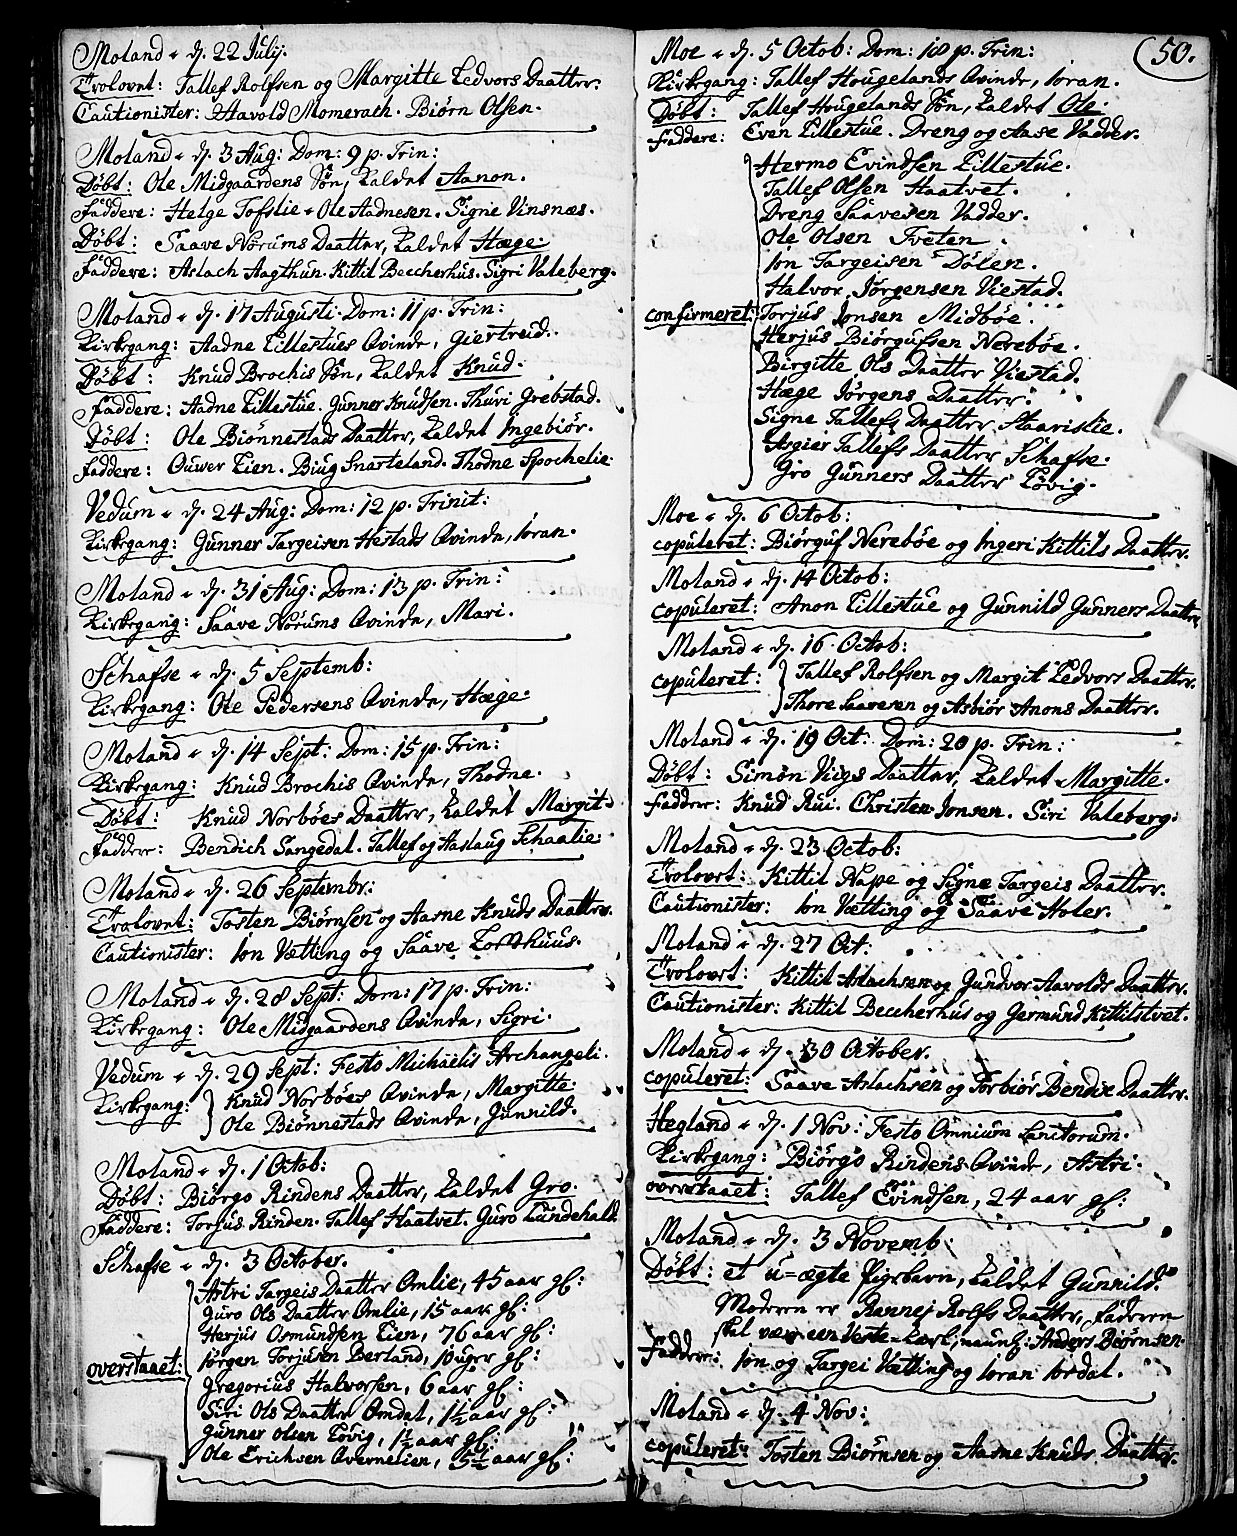 Moland d. 22 Julij.
Trolovet: Tallef Rolfsen og Margitte Ledvors Daatter.
Cautionister: Havold Momerach. Biørn Olsen.
Moland d. 3 Aug: Dom: 9 p. Trin:
Døbt: Ole Midgaardens Søn, kaldet Aanon.
Faddere: Helge Tofslie. Ole Aadnesen. Signe Vinsnæs.
Døbt: Saave Norums Daatter, kaldet Hæge:
Faddere: Aslach Aagthun. Kittil Beccherhus. Sigri Valeberg.
Moland d. 17 Augusti. Dom: 11 p. Trin:
Kirkegang: Aadne Lillestues Qvinde, Giertreid.
Døbt: Knud Brochis Søn, kaldet Knud.
Faddere: Aadne Lillestue. Gunner Knudsen. Thuri Grebstad.
Døbt: Ole Biønnestads Daatter, kaldet Ingebiør.
Faddere: Ouwer Lien. Biug Snarteland. Thodne Spochelie
Vedum d. 24 Aug: Dom: 12 p. Trinit:
Kirkegang: Gunner Targeisen Hestads Qvinde, Ioran.
Moland d. 31 Aug: Dom: 13 p. Trin:
Kirkegang: Saave Norums Qvinde, Mari.
Schafse d. 5 Septemb:
Kirkegang: Ole Pedersens Qvinde, Hæge:
Moland d. 14 Sept: Dom: 15 p. Trin:
Kirkegang: Knud Brochis Qvinde, Thodne.
Døbt: Knud Norbøes Daatter, kaldet Margit.
Fadder: Bendich Sangedal. Tallef og Aaslaug Schaalie:
Moland d. 26 Septembr:
Trolovet: Tosten Biørnsen og Aasne Knuds Daatter.
Cautionister: Ion Vætting og Saave Lofthuus.
Moland d. 28 Sept: Dom: 17 p. Trin:
Kirkegang: Ole Midgaardens Qvinde, Sigri.
Vedum d. 29 Sept: Festo Michaelis Archangeli.
Kirkegang: Knud Norbøes Qvinde, Margitte.
Ole Biønnestads Qvinde, Gunnild.
Moland d. 1 Octob:
Døbt: Biørgo Rindens Daatter, kaldet Gro.
Faddere: Torjus Rinden. Tallef Haatvet. Guro Lundehald.
Schafse d. 3 October.
Astri Targeis Daatter Omlie, 45 aar gl:
Guro Ols Daatter Omlie, 15 aar gl:
Herjus Osmundsen Lien, 76 aar gl:
overstaaet: Jørgen Torjusen Berland, 10 uger gl:
Gregorius Halvorsen, 6 aar gl:
Siri Ols Daatter Omdal, 1½ aar gl:
Gunner Olsen Løvig, 1½ aar gl:
Ole Erichsen Qvernelien, 5½ aar gl:
50.
Moe d. 5 Octob: Dom: 18 p. Trin:
Kirkegang: Tallef Hougelands Qvinde, Ioran.
Døbt: Tallef Hougelands Søn, kaldet Ole.
Faddere: Even Lillestue. Dreng og Aase Vadder.
Hermo Evindsen Lillestue.
Tallef Olsen Haatvet.
Dreng Saavesen Vadder.
Ole Olsen Tveten.
Ion Targeisen Dølen.
Halvor Jørgensen Viestad.
confirmeret: Torjus Jonsen Midbøe.
Herjus Biørgufsen Nerebøe.
Birgitte Ols Daatter Viestad.
Hæge Jørgens Daatter.
Signe Tallefs Daatter Haarislie.
Asgier Tallefs Daatter Schafse.
Gro Gunners Daatter Løvig.
Moe d. 6 Octob:
copuleret: Biørguf Nerebøe og Ingeri Kittils Daatter.
Moland d. 14 Octob:
copuleret: Anon Lillestue og Gunnild Gunners Daatter
Moland d. 16 Octob:
copuleret: Tallef Rolfsen og Margit Ledvors Daatter.
Thore Saavesen og Asbiør Anons Daatter.
Moland d. 19 Oct: Dom: 20 p. Trin:
Døbt: Simon Viigs Daatter, kaldet Margitte.
Fadder: Knud Rui. Christen Jonsen. Siri Valeberg:
Moland d. 23 Octob:
Trolovet: Kittil Nape og Signe Targeis Daatter.
Cautionister: Ion Vætting og Saave Holer.
Moland d. 27 Oct:
Trolovet: Kittil Aslachsen og Gundvor Aavolds Daatter.
Cautionister: Kittil Beccherhus og Germund Kittilstvet.
Moland d. 30 October.
copuleret: Saave Aslachsen og Torbiør Bendix Daatter.
Hegland d. 1 Nov: Festo Omnium Sanctorum.
Kirkegang: Biørgo Rindens Qvinde, Astri.
overstaaet: Tallef Evindsen, 24 aar gl:
Moland d. 3 Novemb:
Døbt: et u=ægte Pigebarn, kaldet Gunnild.
Moderen er Rannej Rolfs Daatter, faderen
skal være een Karl, naunl: Anders Biørnsen
Fadder: Ion og Targei Vætting og Ioran Iordal.
Moland d. 4 Nov:
copuleret: Tosten Biørnsen og Aasne Knuds Daatter.